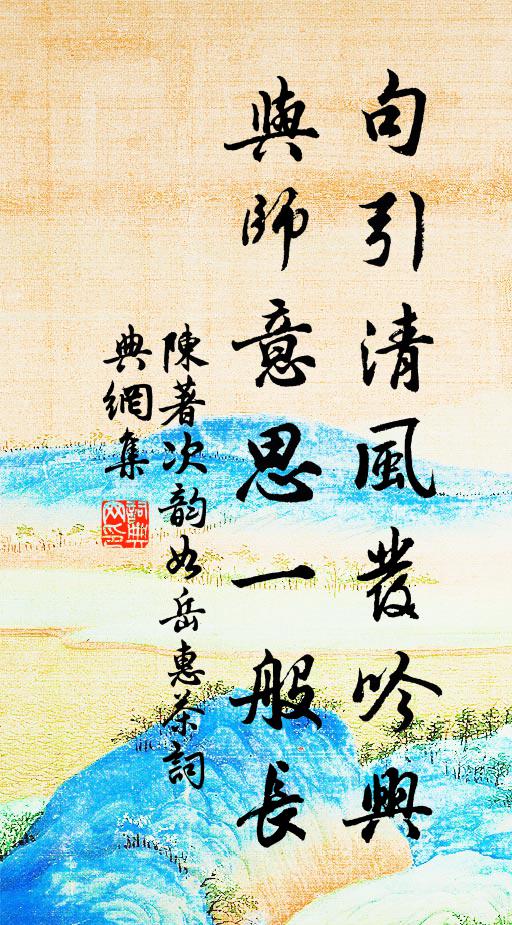 句引清風發吟興
與師意思一般長
陳著次韵如岳惠茶詞
典網集
詞典
网印